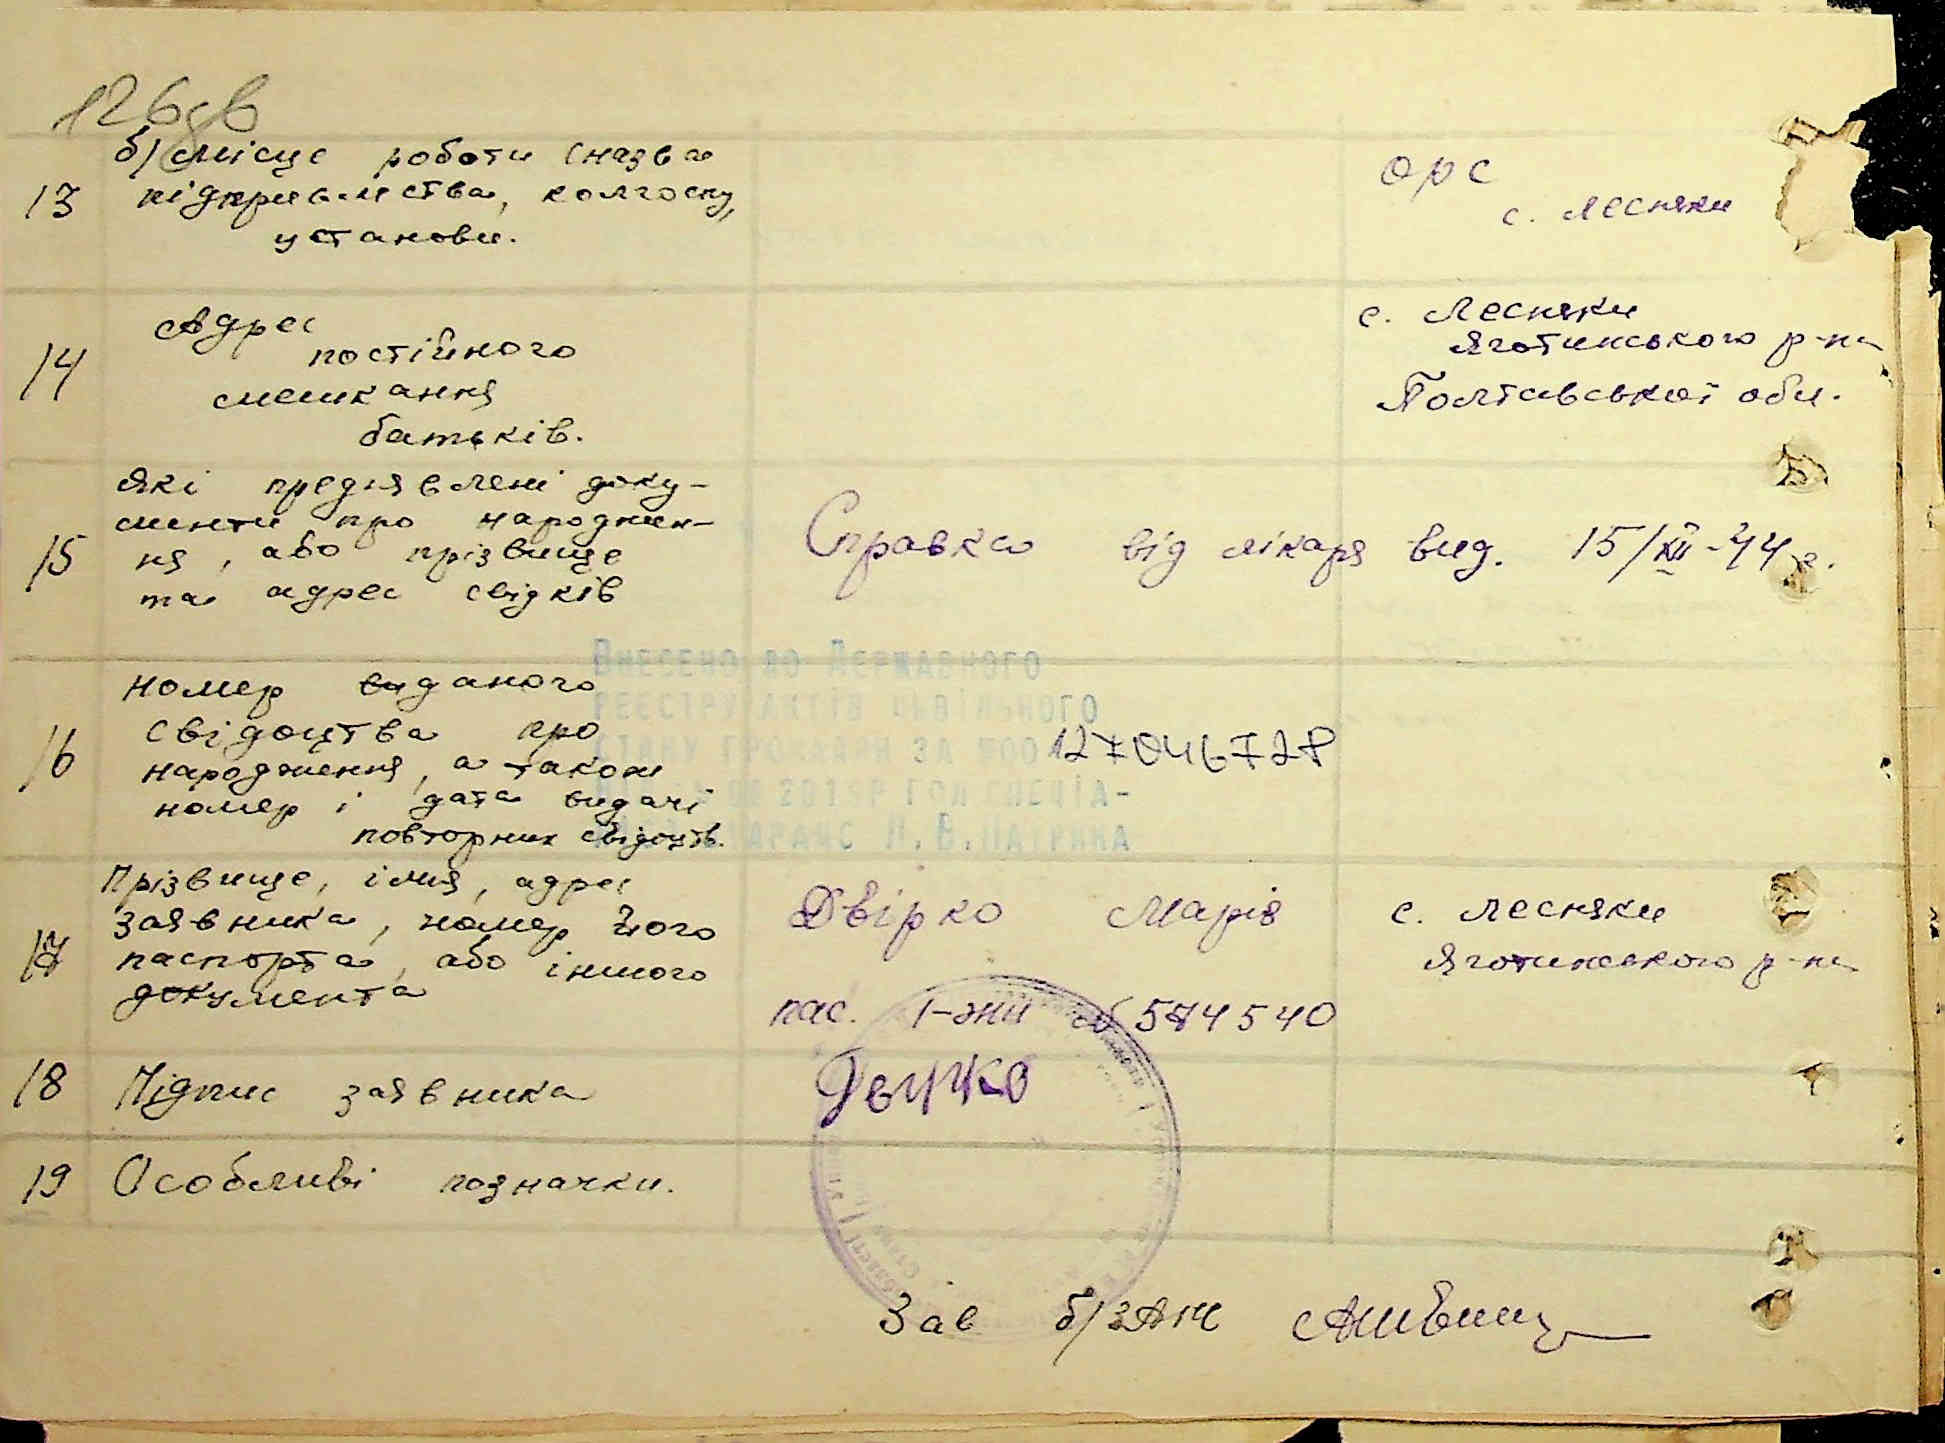 126зв
13 б) місце роботи (назва підприємства, колгоспу, установи.
орс
с. Лесняки
14 Адрес
постійного
мешкання
батьків.
с. Лесняки
Яготинського р-на
Полтавської обл.
15 Які предявлені доку-
менти про народжен-
ня, або прізвище
та адрес свідків
Справка від лікаря вид. 15/XII-44 г.
Внесено до Державного
реєстру актів цивільного
стану громадян за №00127046728
2019р гол спеціа-
Н.В.Патрина
16 Номер виданого
свідоцтва про
народження, а також
номер і дата видачі
повторних свідоцтв.
17 Прізвище, імя, адрес
заявника, номер його
паспорта, або іншого
документа
Двірко Марія
с. Лесняки
Яготинського р-на
пас. I-ЭЖИ 574540
18 Підпис заявника
19 Особливі позначки.
Зав б/ЗАГС